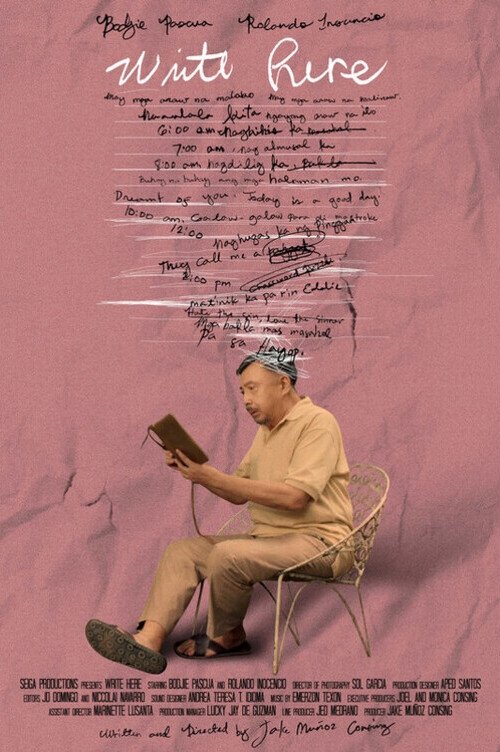 Bodjie Pascua Rolando Inocencio
Write Here
May mga araw na malabo May mga araw na malinaw.
Naaalala kita ngayong araw na ito
6:00 am nagbihis ka
7:00 am, nag almusal ka
8:00 am nagdilig ka,
Buhay na buhay ang mga halaman mo.
Dreamt of you. Today is a good day.
10:00 am, Galaw-galaw para di mastroke
12:00
naghugas ka ng pinggan
They call me a
2:00 pm
matinik ka parin Eddie
Hate the sin, love the sinner
Mga bakla mas masahol
Pa sa Hayop.
SEIGA PRODUCTIONS PRESENTS WRITE HERE STARRING BODJIE PASCUA AND ROLANDO INOCENCIO DIRECTOR OF PHOTOGRAPHY SOL GARCIA PRODUCTION DESIGNER APED SANTOS
EDITORS JD DOMINGO AND NICCOLAI NAVARRO SOUND DESIGNER ANDREA TERESA T. IDIOMA MUSIC BY EMERZON TEXON EXECUTIVE PRODUCERS JOEL AND MONICA CONSING
ASSISTANT DIRECTOR MARINETTE LUSANTA PRODUCTION MANAGER LUCKY JAY DE GUZMAN LINE PRODUCER JED MEDRANO PRODUCER JAKE MUÑOZ CONSING
Written and Directed by Jake Muñoz Consing